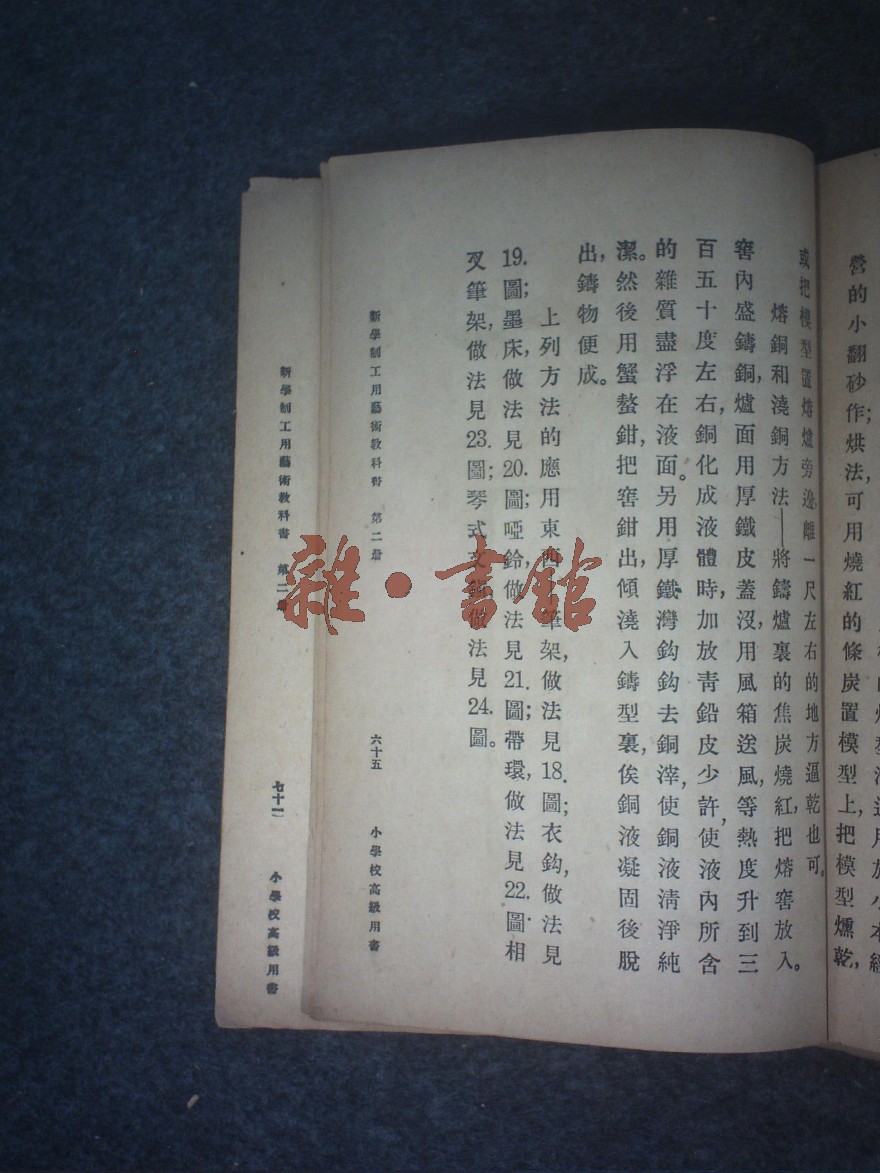 營的小翻砂作烘法，可用燒紅的條炭置模型上，把模型燻乾，
或把模型置熔爐旁邊，離一尺左右的地方逼乾也可。
熔銅和澆銅方法——將鑄爐裏的焦炭燒紅，把熔窖放入。
窖內盛鑄銅，爐面用厚鐵皮蓋沒，用風箱送風，等熱度升到三
百五十度左右，銅化成液體時，加放靑鉛皮少許，使液內所含
的雜質盡浮在液面。另用厚鐵灣鈎鈎去銅滓，使銅液清淨純
潔。然後用蟹螯鉗，把窖鉗出，傾澆入鑄型裏，俟銅液凝固後脫
出，鑄物便成。
上列方法的應用東西：筆架，做法見18.圖；衣鈎，做法見
19.圖；墨床，做法見20.圖；啞鈴，做法見21.圖；帶環，做法見22.圖；相
叉筆架，做法見23.圖；琴式文鎮，做法見24.圖。
新學制工用藝術教科書　第二册　六十五　小學校高級用書
新學制工用藝術教科書　第二册　七十一　小學校高級用書
雜·書館